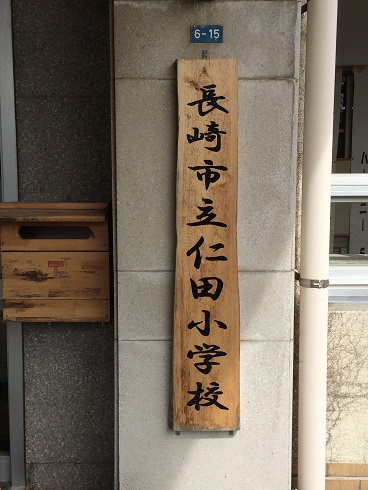 6-15
長崎市立仁田小学校
〒